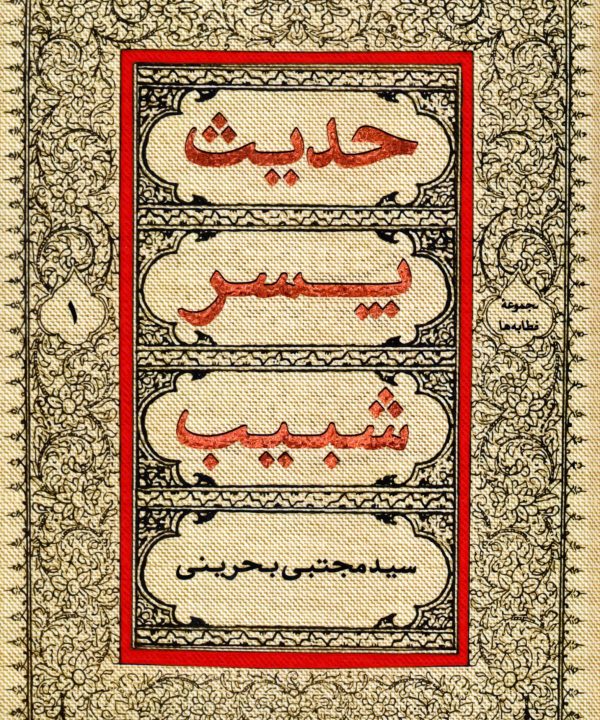 حدیث
پسر
شبیب
سید مجتبی بحرینی
مجموعه
خطابه‌ها
۱